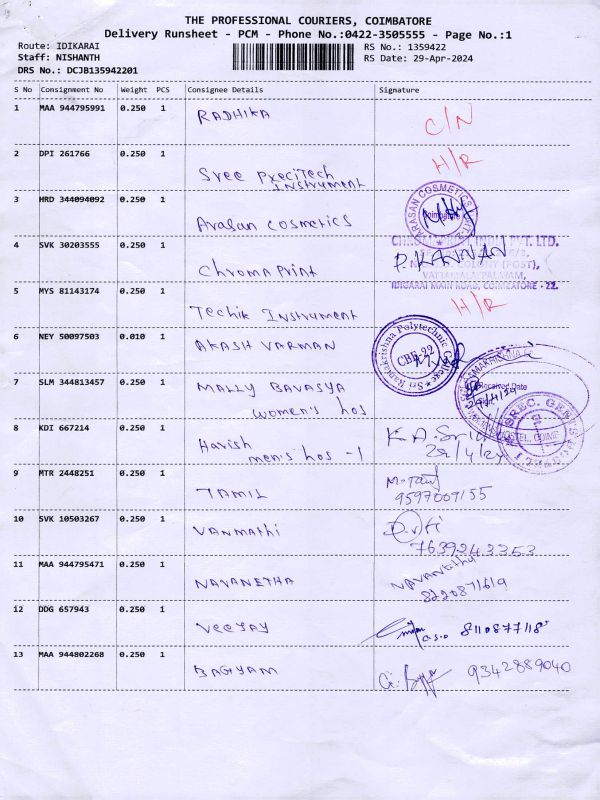 THE PROFESSIONAL COURIERS, COIMBATORE
Delivery Runsheet - PCM - Phone No.:0422-3505555 - Page No.:1
Route: IDIKARAI
RS No.: 1359422
Staff: NISHANTH
RS Date: 29-Apr-2024
DRS No.: DCJB135942201
S No Consignment No Weight PCS Consignee Details Signature
1 MAA 944795991 0.250 1 RADHIKA C/N
2 DPI 261766 0.250 1 Sree Precitech H/R
Instrument
3 HRD 344094092 0.250 1 Arasan cosmetics
ARASAN COSMETICS
Coimbatore
4 SVK 30203555 0.250 1 Chroma print P. KANNAN
INDIA PVT. LTD.
COLONY (POST),
VATTAMALAIPALAYAM,
IDIGARAI MAIN ROAD, COIMBATORE - 22.
5 MYS 81143174 0.250 1 Techik Instrument H/R
6 NEY 50097503 0.010 1 AKASH VARMAN
Sri Ramakrishna Polytechnic College
CBE-22
7 SLM 344813457 0.250 1 MALLY BAVASYA
women's hos
Received Date
29/4/24
8 KDI 667214 0.250 1 Harish K.A.
men's hos -1 29/4/24
SREC. GENTS
HOSTEL, COIMB
9 MTR 2448251 0.250 1 TAMIL
9597009155
10 SVK 10503267 0.250 1 VANMAthi
7639243353
11 MAA 944795471 0.250 1 NAVANETHA
12 DDG 657943 0.250 1 VEEJAY 8110877118
13 MAA 944802268 0.250 1 BAGYAM 9342889040